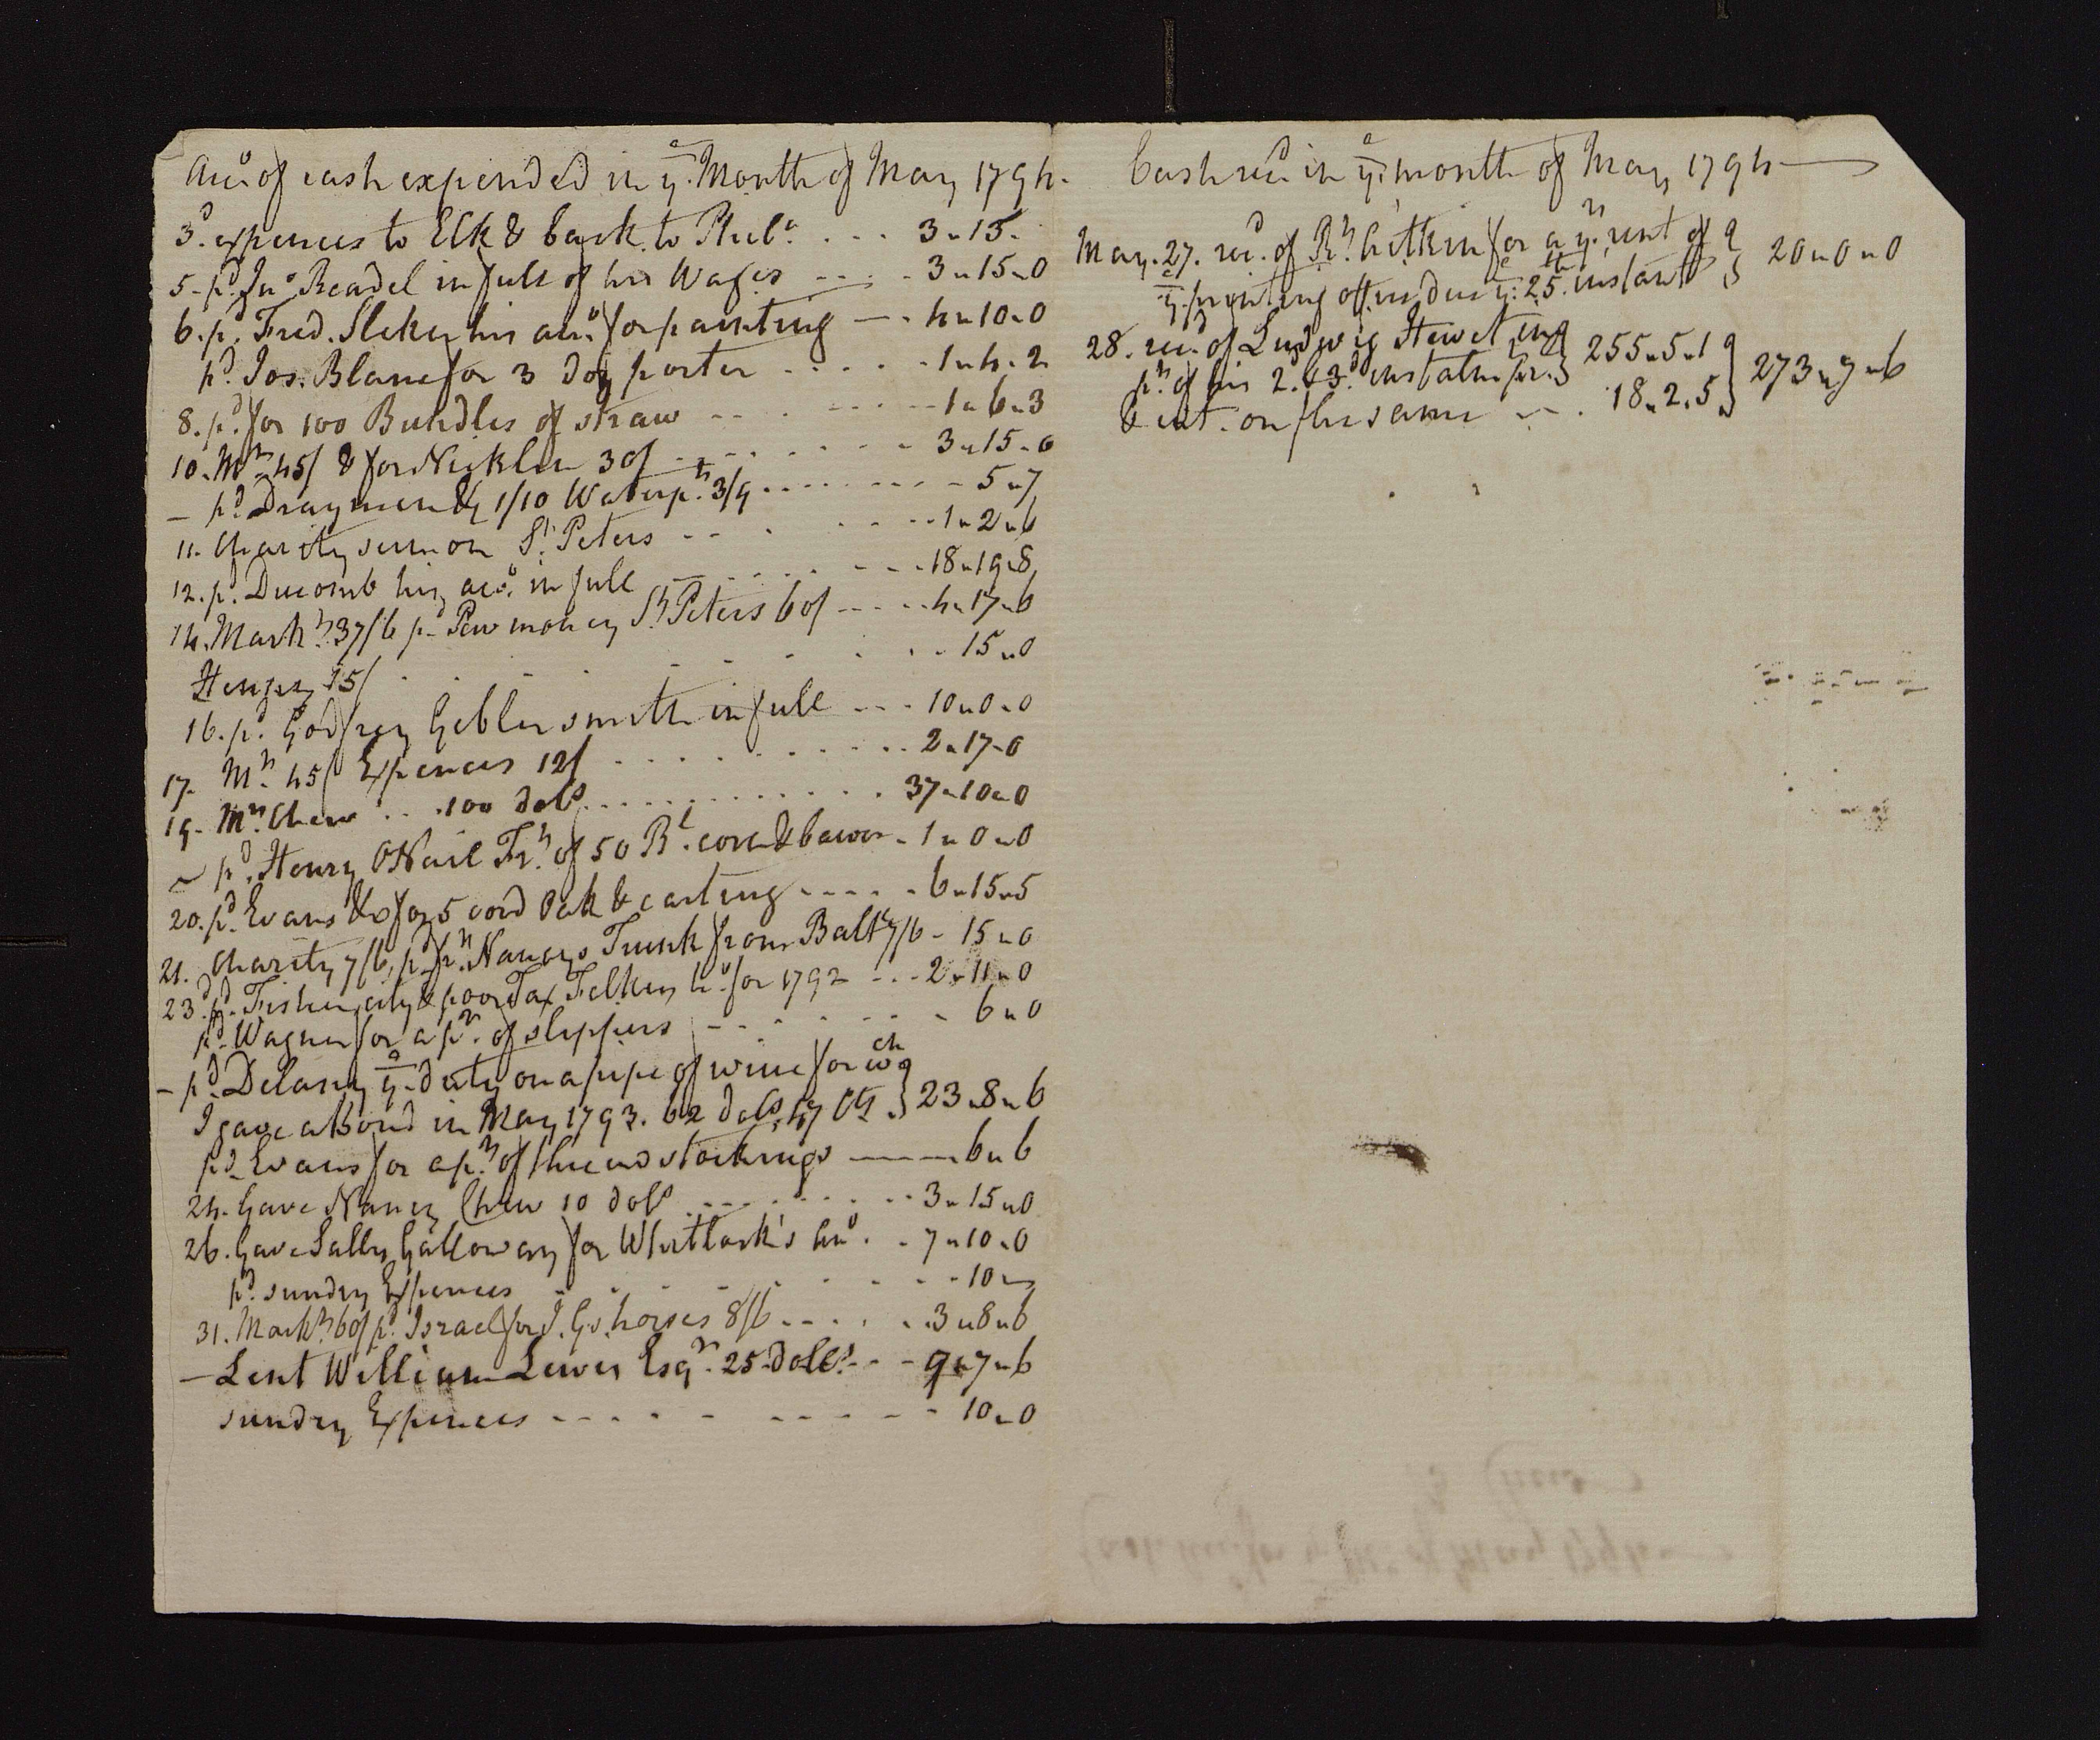 Acco. of cash expended in ye. Month of May 1794.
3d. expences to Elk & back to Phila. . . . 3"15.
5. pd. Jno. Readel in full of his Wages . . . 3"15"0
6. pd. Fred. his acco. for painting — . 4"10"0
pd. Jos. Blanc for 3 doz porter . . . . . 1"4.2
8. pd. for 100 Bundles of straw . . . . 1"6"3
10. Mt. 45/ & for Nicklen 30/ . . . . . 3"15.0
— pd. Draymen &c 1/10 Water pt. 3/9 . . . . 5"7
11. Charity sermon St. Peters . . . . 1"2"6
12. pd. Ducomb his acco. in full . . . . 18"19"8
14. Markt. 37/6 pd. Pew money St. Peters 60/ . . . . 4"17"6
15/ . . . . . . 15"0
16. pd. Godfrey Gebler smith in full . . . 10"0"0
17. Mt. 45/ Expences 12/ . . . . . 2"17"0
19. Mrs. Chew . . . 100 dols . . . . . 37"10"0
~ pd. Henry ONeil Frt. of 50 Bl. corn & bacon . 1"0"0
20. pd. Evans &c for 5 cord Oak & carting . . . . 6"15"5
21. Charity 7/6, pd. frt. Nancys Trunk from Balte. 7/6 . 15"0
23d. pd. Fisher city & poor Tax ho. for 1792 . . . 2"11"0
pd. Wagner for a pr. of slippers . . . . . 6"0
— pd. Delany ye. duty on a pipe of wine for wch
I gave a Bond in May 1793. 62 dols. 47 Cts. } 23"8"6
pd. Evans for a pr. of thread stockings —— 6"6
24. Gave Nancy Chew 10 dols . . . . . 3"15"0
26. Gave Sally Galloway for Whitlock's acco. . 7"10"0
pd. sundry Expences . . . . . 10"
31. Markt. 60/ pd. Israel for J. Gs. horses 8/6 . . . . 3"8"6
— Lent William Lewis Esqr. 25 dolls. . . 9"7"6
sundry Expences . . . . . . 10"0
Cash recd. in ye. month of May 1794 —
May. 27. recd. of Rt. Aitkin for a yrs. rent of } 20"0"0
ye. printing office due ye. 25th. instant
28. recd. of Ludwig in } 255"5"1 } 273"7"6
pt. of his 2. & 3d. instalmts.
& int. on the same . . . 18"2"5